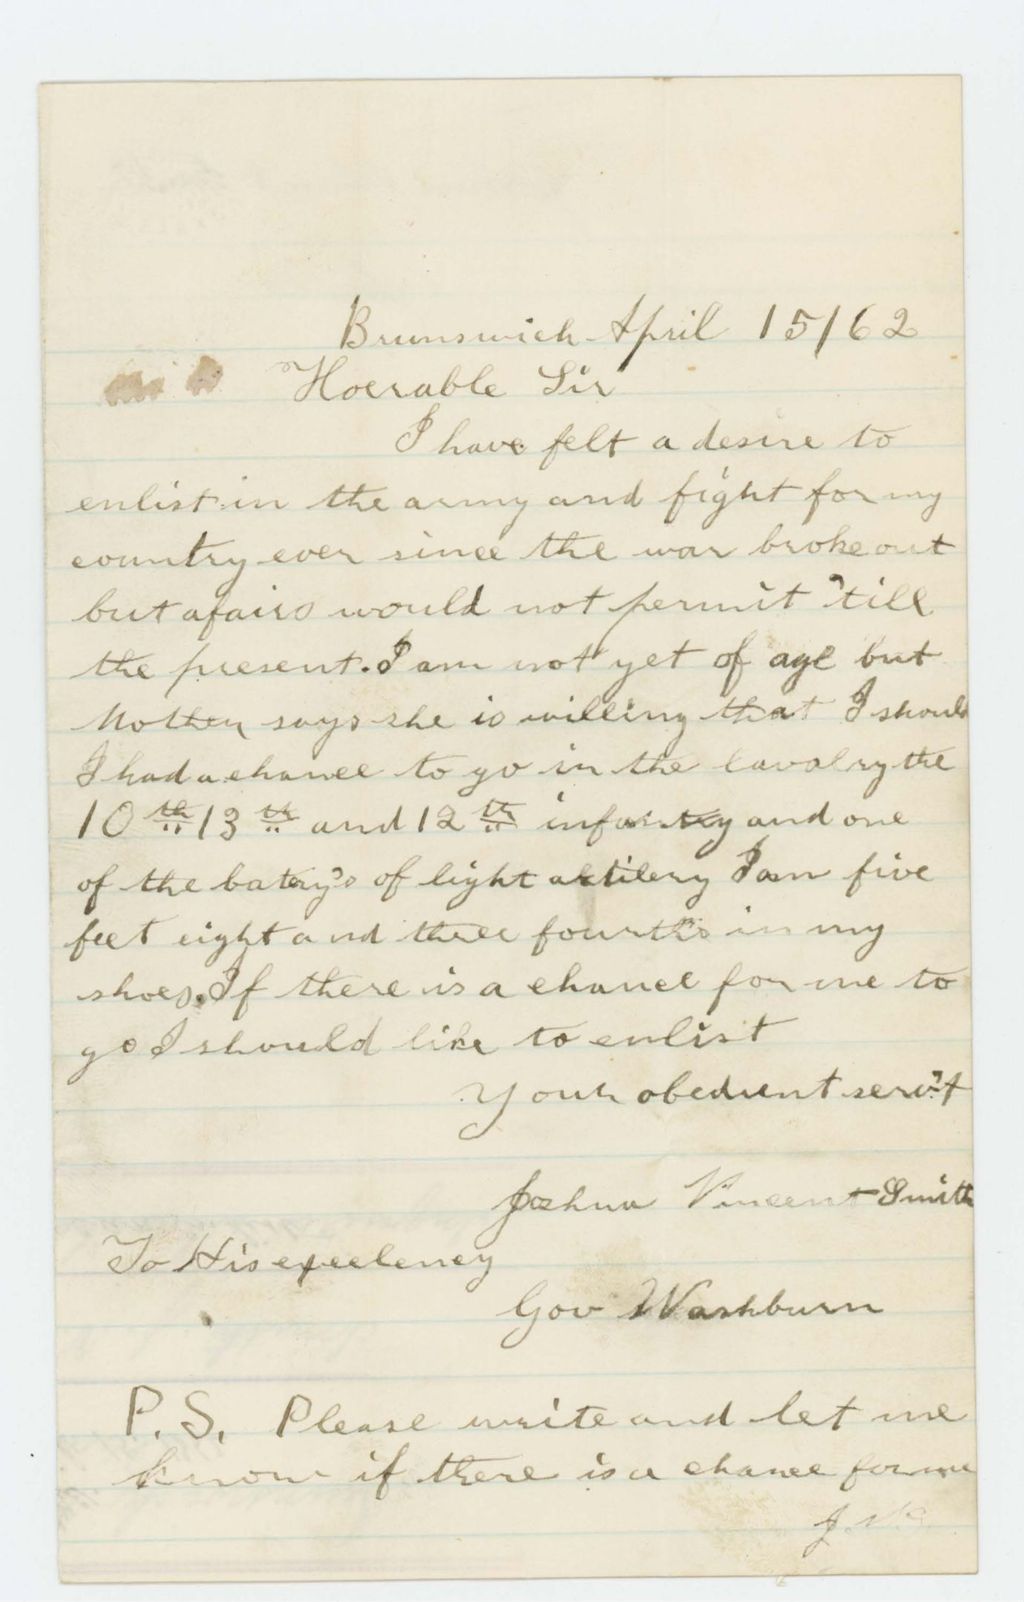 Brunswick April 15/62
Hoerable Sir
I have felt a desire to
enlist in the army and fight for my
country ever since the war broke out
but afairs would not permit 'till
the present. I am not yet of age but
Mother says she is willing that I should
I had a chance to go in the Cavalry the
10th 13th and 12th infantry and one
of the batery's of light artilery I am five
feet eight and three fourths in my
shoes. If there is a chance for me to
go I should like to enlist
Your obedient serv't
Joshua Vincent Smith
To His expeelency
Gov Washburn
P.S. Please write and let me
know if there is a chance for me
J.V.S.